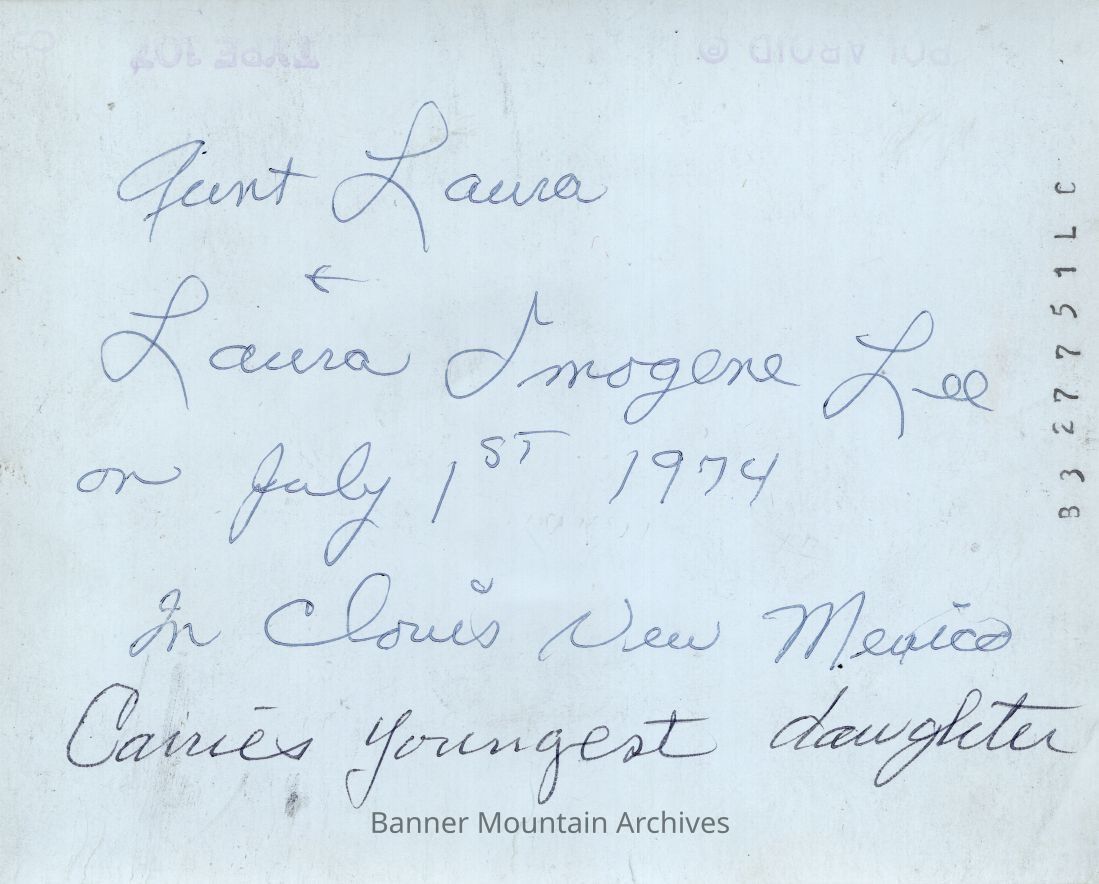 Aunt Laura
←
Laura Imogene Lee
on July 1ST 1974
In Clovis New Mexico
Carrie's youngest daughter
Banner Mountain Archives
B327751LC
POLAROID ®